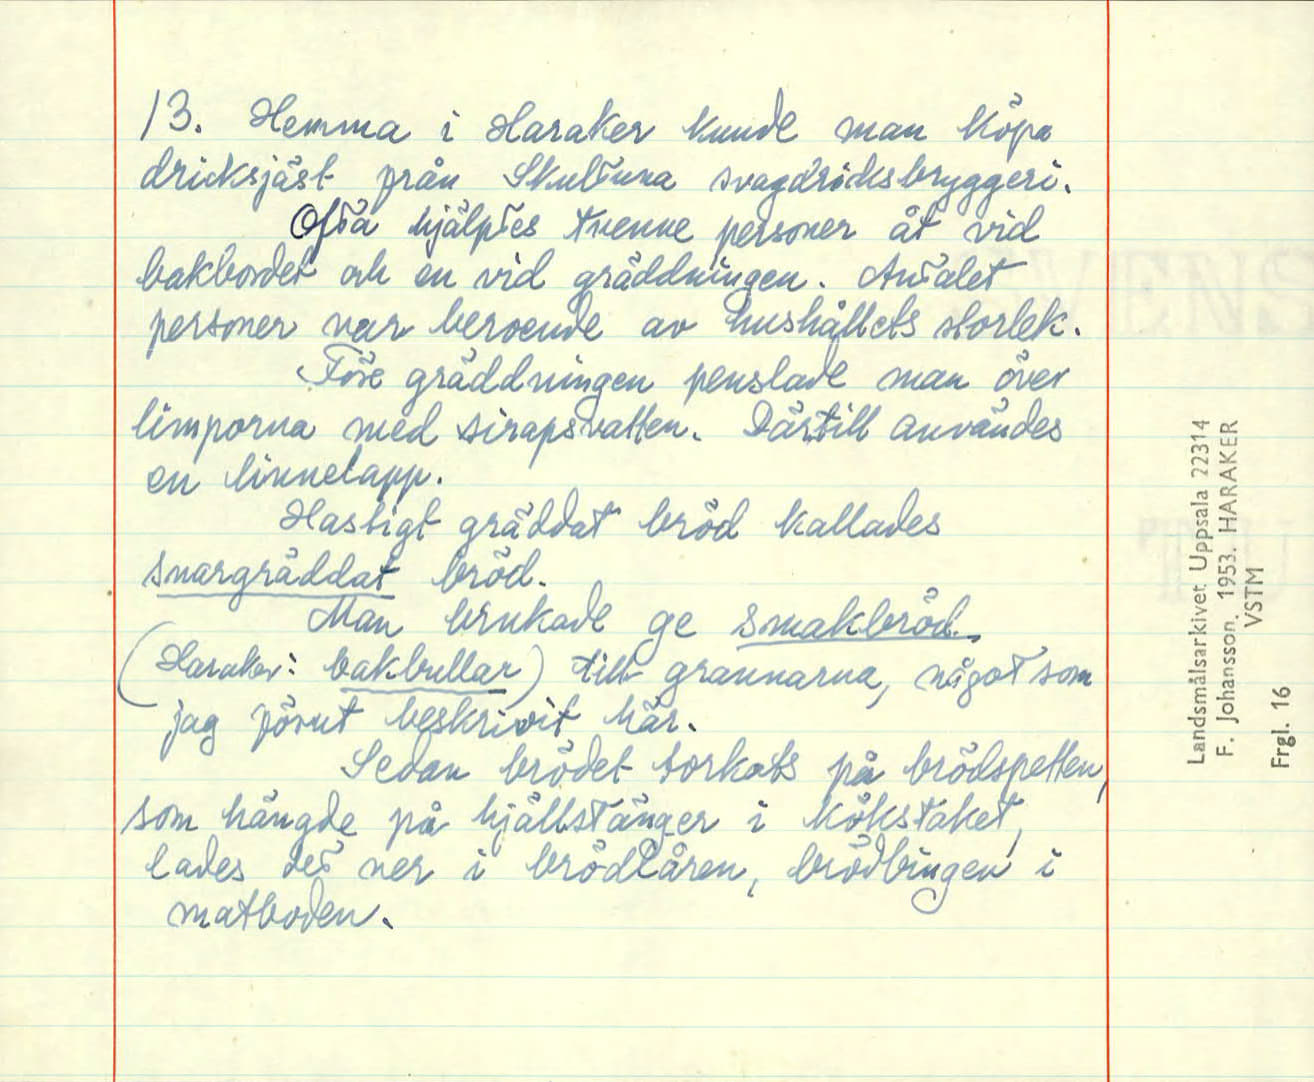 13. Hemma i Haraker kunde man köpa
dricksjäst från Skultuna svagdricksbryggeri.
Ofta hjälptes tvenne personer åt vid
bakbordet och en vid gräddningen. Antalet
personer var beroende av hushållets storlek.
Före gräddningen penslade man över
limporna med sirapsvatten. Därtill användes
en linnelapp.
Hastigt gräddat bröd kallades
snargräddat bröd.
Man brukade ge smakbröd
(Haraker: bakbullar) till grannarna, något som
jag förut beskrivit här.
Sedan brödet torkats på brödspetten,
som hängde på hjällstänger i kökstaket,
lades det ner i brödlåren, brödbingen i
matboden.
Landsmålsarkivet Uppsala 22314
F. Johansson. 1953. HARAKER
VSTM
Frgl. 16